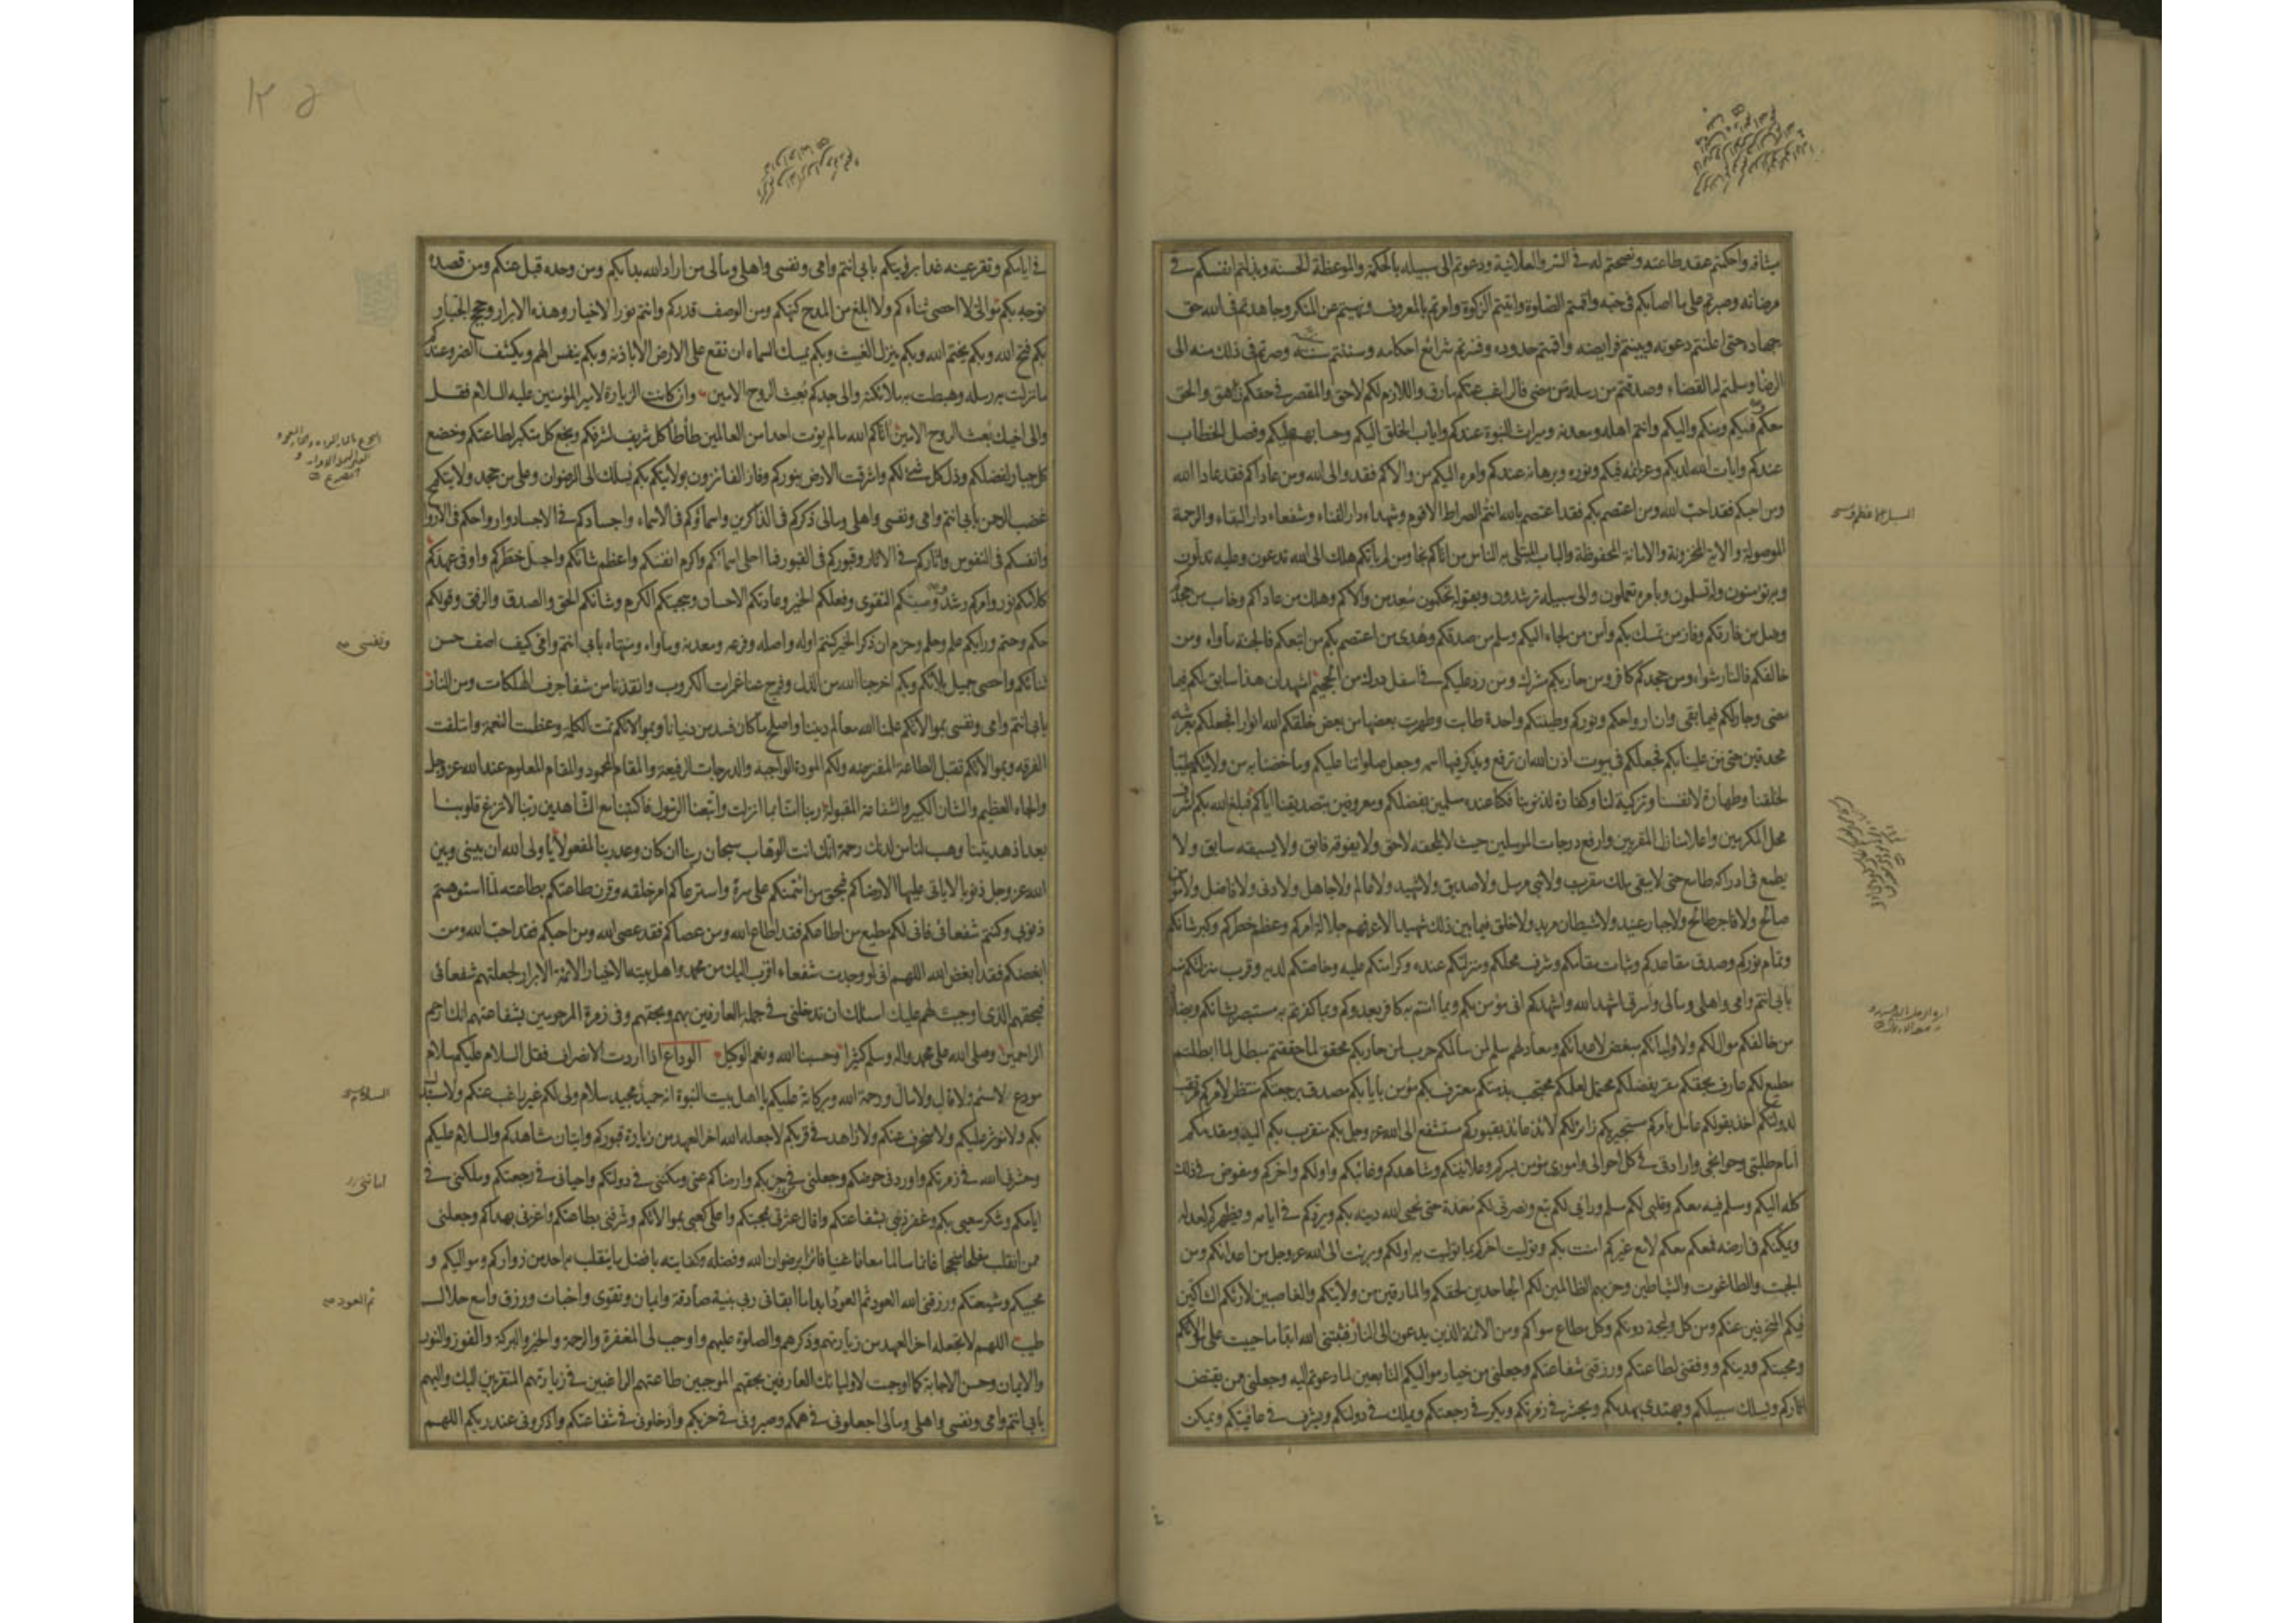 ميثاقه واحكمتم عقد طاعته ونصحتم له في السر والعلانية ودعوتم الى سبيله بالحكمة والموعظة الحسنة وبذلتم انفسكم في
مرضاته وصبرتم على ما اصابكم في جنبه واقمتم الصلوة واتيتم الزكوة وامرتم بالمعروف ونهيتم عن المنكر وجاهدتم في الله حق
جهاده حتى اعلنتم دعوته وبينتم فرايضه واقمتم حدوده وفسرتم شرائع احكامه وسننتم سنته وصرتم في ذلك منه الى
الرضا وسلمتم له القضاء وصدقتم من رسله من مضى فالراغب عنكم مارق واللازم لكم لاحق والمقصر في حقكم زاهق والحق
معكم وفيكم ومنكم واليكم وانتم اهله ومعدنه وميراث النبوة عندكم واياب الخلق اليكم وحسابهم عليكم وفصل الخطاب
عندكم وايات الله لديكم وعزائمه فيكم ونوره وبرهانه عندكم وامره اليكم من والاكم فقد والى الله ومن عاداكم فقد عادا الله
ومن احبكم فقد احب الله ومن اعتصم بكم فقد اعتصم بالله انتم الصراط الاقوم وشهداء دار الفناء وشفعاء دار البقاء والرحمة
الموصولة والاية المخزونة والامانة المحفوظة والباب المبتلى به الناس من اتاكم نجا ومن لم يأتكم هلك الى الله تدعون وعليه تدلون
وبه تؤمنون وله تسلمون وبأمره تعملون والى سبيله ترشدون وبقوله تحكمون سعد من والاكم وهلك من عاداكم وخاب من جحدكم
وضل من فارقكم وفاز من تمسك بكم وأمن من لجاء اليكم وسلم من صدقكم وهدى من اعتصم بكم من اتبعكم فالجنة مأواه ومن
خالفكم فالنار مثواه ومن جحدكم كافر ومن حاربكم مشرك ومن رد عليكم في اسفل درك من الجحيم اشهد ان هذا سابق لكم فيما
مضى وجار لكم فيما بقى وان ارواحكم ونوركم وطينتكم واحدة طابت وطهرت بعضها من بعض خلقكم الله انوارا فجعلكم بعرشه
محدقين حتى من علينا بكم فجعلكم في بيوت اذن الله ان ترفع ويذكر فيها اسمه وجعل صلواتنا عليكم وما خصنا به من ولايتكم طيبا
لخلقنا وطهارة لانفسنا وتزكية لنا وكفارة لذنوبنا فكنا عنده مسلمين بفضلكم ومعروفين بتصديقنا اياكم فبلغ الله بكم اشرف
محل المكرمين واعلا منازل المقربين وارفع درجات المرسلين حيث لا يلحقه لاحق ولا يفوقه فائق ولا يسبقه سابق ولا
يطمع في ادراكه طامع حتى لا يبقى ملك مقرب ولا نبي مرسل ولا صديق ولا شهيد ولا عالم ولا جاهل ولا دني ولا فاضل ولا مؤمن
صالح ولا فاجر طالح ولا جبار عنيد ولا شيطان مريد ولا خلق فيما بين ذلك شهيد الا عرفهم جلالة امركم وعظم خطركم وكبر شانكم
وتمام نوركم وصدق مقاعدكم وثبات مقامكم وشرف محلكم ومنزلتكم عنده وكرامتكم عليه وخاصتكم لديه وقرب منزلتكم منه
بأبي انتم وامي واهلي ومالي واسرتي اشهد الله واشهدكم اني مؤمن بكم وبما امنتم به كافر بعدوكم وبما كفرتم به مستبصر بشانكم وبضلالة
من خالفكم موال لكم ولاوليائكم مبغض لاعدائكم ومعاد لهم سلم لمن سالمكم حرب لمن حاربكم محقق لما حققتم مبطل لما ابطلتم
مطيع لكم عارف بحقكم مقر بفضلكم محتمل لعلمكم محتجب بذمتكم معترف بكم مؤمن بايابكم مصدق برجعتكم منتظر لأمركم مرتقب
لدولتكم اخذ بقولكم عامل بأمركم مستجير بكم زائر لكم لائذ عائذ بقبوركم مستشفع الى الله عز وجل بكم متقرب بكم اليه ومقدمكم
أمام طلبتي وحوائجي وارادتي في كل احوالي واموري مؤمن بسركم وعلانيتكم وشاهدكم وغائبكم واولكم واخركم ومفوض في ذلك
كله اليكم ومسلم فيه معكم وقلبي لكم مسلم ورائي لكم تبع ونصرتي لكم معدة حتى يحيى الله دينه بكم ويردكم في ايامه ويظهركم لعدله
ويمكنكم في ارضه فمعكم معكم لا مع غيركم امنت بكم وتوليت اخركم بما توليت به اولكم وبرئت الى الله عز وجل من اعدائكم ومن
الجبت والطاغوت والشياطين وحزبهم الظالمين لكم الجاحدين لحقكم والمارقين من ولايتكم والغاصبين لارثكم الشاكين
فيكم المنحرفين عنكم ومن كل وليجة دونكم وكل مطاع سواكم ومن الائمة الذين يدعون الى النار فثبتني الله ابدا ما حييت على موالاتكم
ومحبتكم ودينكم ووفقني لطاعتكم ورزقني شفاعتكم وجعلني من خيار مواليكم التابعين لما دعوتم اليه وجعلني ممن يقتص
اثاركم ويسلك سبيلكم ويهتدي بهديكم ويحشر في زمرتكم ويكر في رجعتكم ويملك في دولتكم ويشرف في عافيتكم ويمكن
في ايامكم وتقر عينه غدا برؤيتكم بابي انتم وامي ونفسي واهلي ومالي من اراد الله بدأ بكم ومن وحده قبل عنكم ومن قصده
توجه بكم موالي لا احصي ثناءكم ولا ابلغ من المدح كنهكم ومن الوصف قدركم وانتم نور الاخيار وهداة الابرار وحجج الجبار
بكم فتح الله وبكم يختم الله وبكم ينزل الغيث وبكم يمسك السماء ان تقع على الارض الا باذنه وبكم ينفس الهم ويكشف الضر وعندكم
ما نزلت به رسله وهبطت به ملائكته والى جدكم بعث الروح الامين وان كانت الزيارة لامير المؤمنين عليه السلام فقل
والى اخيك بعث الروح الامين اتاكم الله ما لم يؤت احدا من العالمين طأطأ كل شريف لشرفكم وبخع كل متكبر لطاعتكم وخضع
كل جبار لفضلكم وذل كل شئ لكم واشرقت الارض بنوركم وفاز الفائزون بولايتكم بكم يسلك الى الرضوان وعلى من جحد ولايتكم
غضب الرحمن بأبي انتم وامي ونفسي واهلي ومالي ذكركم في الذاكرين واسماؤكم في الاسماء واجسادكم في الاجساد وارواحكم في الارواح
وانفسكم في النفوس واثاركم في الاثار وقبوركم في القبور فما احلى اسمائكم واكرم انفسكم واعظم شانكم واجل خطركم واوفى عهدكم
كلامكم نور وامركم رشد ووصيتكم التقوى وفعلكم الخير وعادتكم الاحسان وسجيتكم الكرم وشأنكم الحق والصدق والرفق وقولكم
حكم وحتم ورأيكم علم وحلم وحزم ان ذكر الخير كنتم اوله واصله وفرعه ومعدنه ومأواه ومنتهاه بأبي انتم وامي كيف اصف حسن
ونفسي
ثنائكم واحصي جميل بلائكم وبكم اخرجنا الله من الذل وفرج عنا غمرات الكروب وانقذنا من شفا جرف الهلكات ومن النار
بأبي انتم وامي ونفسي بموالاتكم علمنا الله معالم ديننا واصلح ما كان فسد من دنيانا وبموالاتكم تمت الكلمة وعظمت النعمة وائتلفت
الفرقة وبموالاتكم تقبل الطاعة المفترضة ولكم المودة الواجبة والدرجات الرفيعة والمقام المحمود والمقام المعلوم عند الله عز وجل
والجاه العظيم والشان الكبير والشفاعة المقبولة ربنا امنا بما انزلت واتبعنا الرسول فاكتبنا مع الشاهدين ربنا لا تزغ قلوبنا
بعد اذ هديتنا وهب لنا من لدنك رحمة انك انت الوهاب سبحان ربنا ان كان وعد ربنا لمفعولا يا ولي الله ان بيني وبين
الله عز وجل ذنوبا لا ياتي عليها الا رضاكم فبحق من ائتمنكم على سره واسترعاكم امر خلقه وقرن طاعتكم بطاعته لما استوهبتم
ذنوبي وكنتم شفعائي فاني لكم مطيع من اطاعكم فقد اطاع الله ومن عصاكم فقد عصى الله ومن احبكم فقد احب الله ومن
ابغضكم فقد ابغض الله اللهم اني لو وجدت شفعاء اقرب اليك من محمد واهل بيته الاخيار الائمة الابرار لجعلتهم شفعائي
فبحقهم الذي اوجبت لهم عليك اسئلك ان تدخلني في جملة العارفين بهم وبحقهم وفي زمرة المرحومين بشفاعتهم انك ارحم
الراحمين وصلى الله على محمد واله وسلم كثيرا وحسبنا الله ونعم الوكيل الوداع اذا اردت الانصراف فقل السلام عليكم سلام
مودع لا سئم ولا قال ولا مال ورحمة الله وبركاته عليكم يا اهل بيت النبوة انه حميد مجيد سلام ولي لكم غير راغب عنكم ولا مستبدل
السلام
بكم ولا مؤثر عليكم ولا منحرف عنكم ولا زاهد في قربكم لا جعله الله اخر العهد من زيارة قبوركم واتيان مشاهدكم والسلام عليكم
وحشرني الله في زمرتكم واوردني حوضكم وجعلني في حزبكم وارضاكم عني ومكنني في دولتكم واحياني في رجعتكم وملكني في
ايامكم وشكر سعيي بكم وغفر ذنبي بشفاعتكم واقال عثرتي بمحبتكم واعلى كعبي بموالاتكم وشرفني بطاعتكم واعزني بهداكم وجعلني
ممن انقلب مفلحا منجحا غانما سالما معافا غنيا فائزا برضوان الله وفضله وكفايته بافضل ما ينقلب به احد من زواركم ومواليكم و
محبيكم وشيعتكم ورزقني الله العود ثم العود ابدا ما ابقاني ربي بنية صادقة وايمان وتقوى واخبات ورزق واسع حلال
ثم العود
طيب اللهم لا تجعله اخر العهد من زيارتهم وذكرهم والصلوة عليهم واوجب لي المغفرة والرحمة والخير والبركة والفوز والنور
والايمان وحسن الاجابة كما اوجبت لاوليائك العارفين بحقهم الموجبين طاعتهم الراغبين في زيارتهم المتقربين اليك واليهم
بأبي انتم وامي ونفسي واهلي ومالي اجعلوني في همكم وصيروني في حزبكم وادخلوني في شفاعتكم واذكروني عند ربكم اللهم